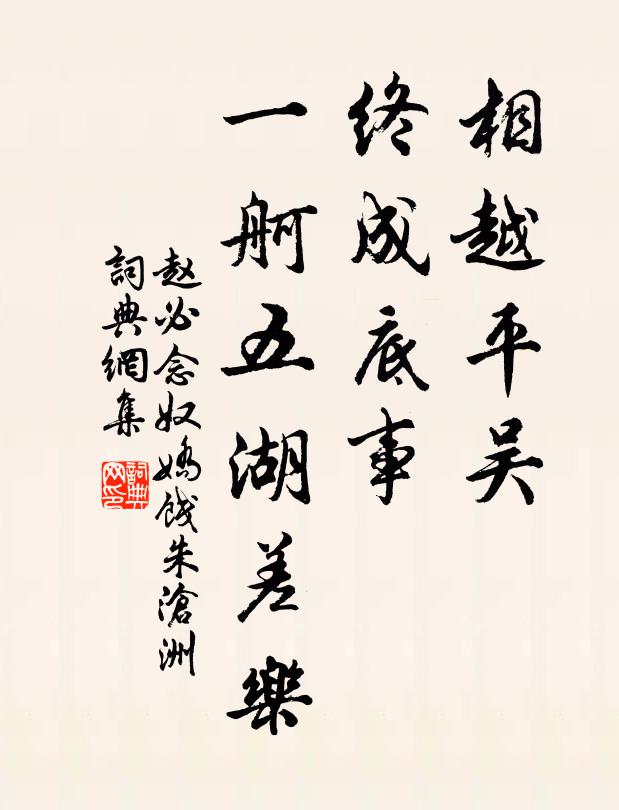 相越平吴
终成底事
一舸五湖差樂
赵必念奴嬌餞朱滄洲
詞典網集
詞典网印